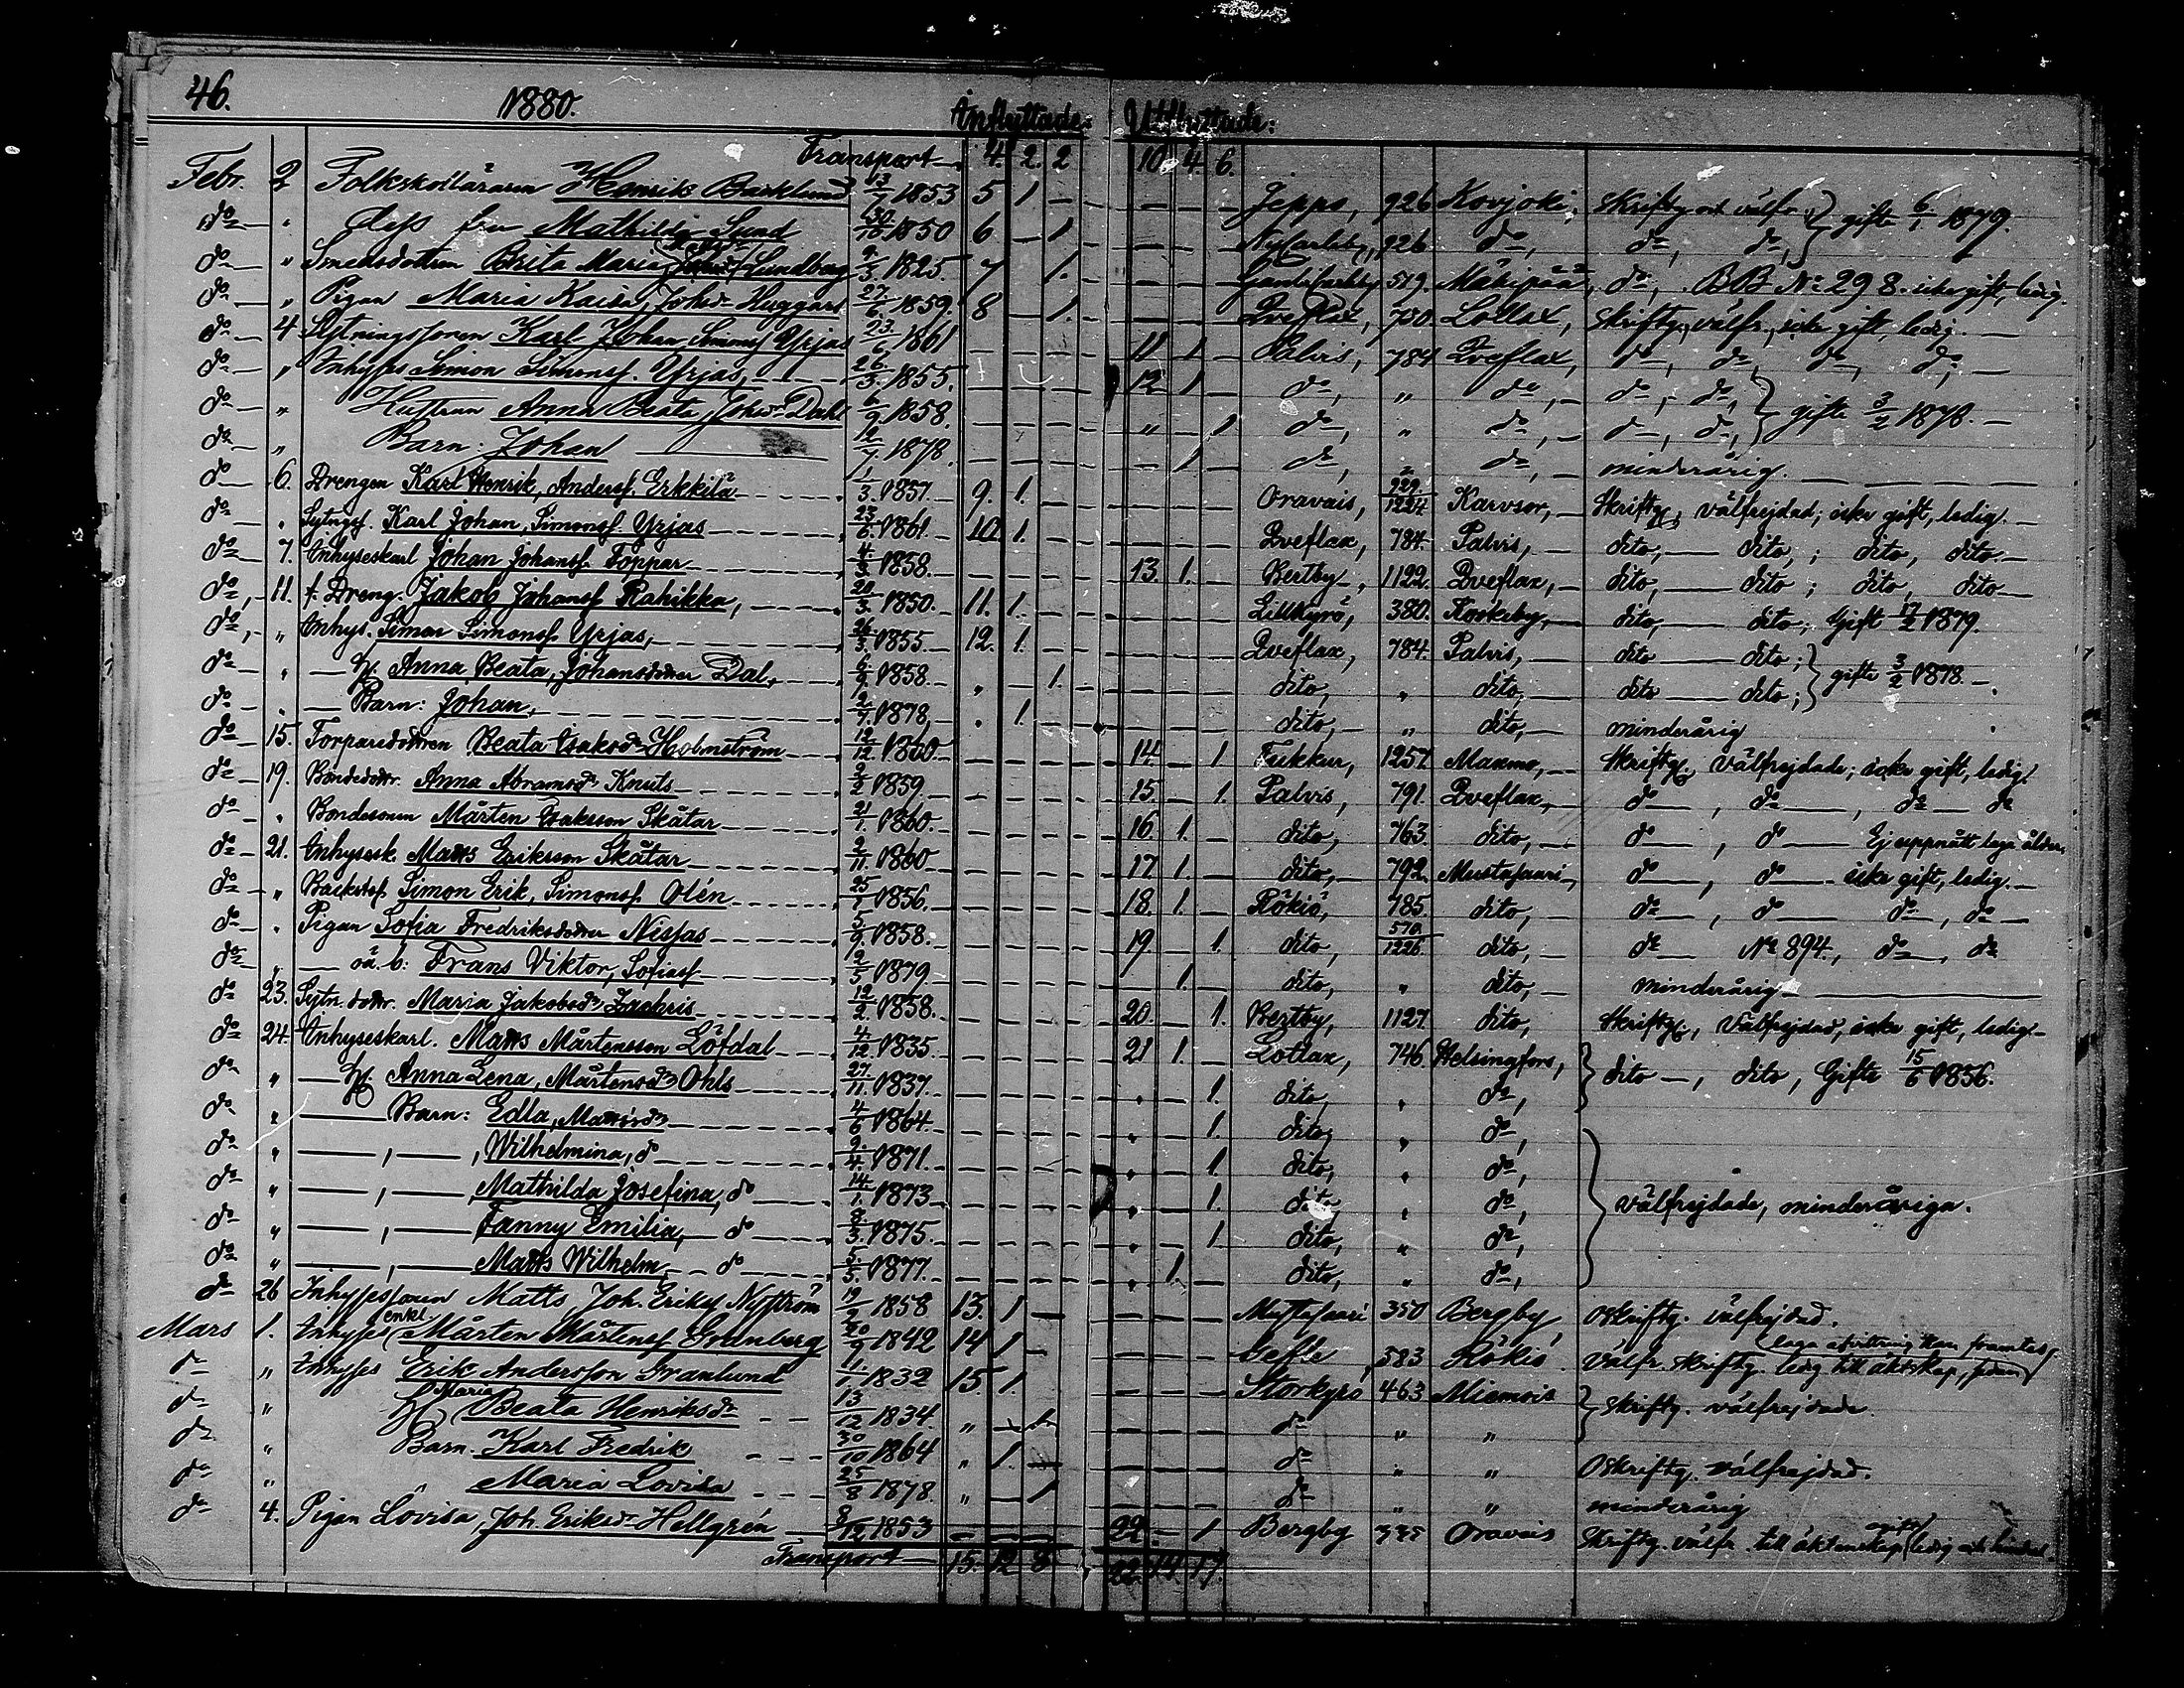 46. 1880. Inflyttade: Utflyttade:
Transport 4. 2. 2 10. 4. 6.
Febr. 2 Folkskolläraren Henrik Backlund 13/7 1853 5 1 Jeppo, 926 Kovjoki, Skriftg och välfr. gifte 6/1 1879.
do " dess fru Mathilda Sund 30/10 1850 6 1. Nykarleby, 926 do, do, do,
do " Smedsdottren Brita Maria Lundberg 9/3 1825. 7 1. Gamlakarleby 519. Mäkipää, do, BB No 298. icke gift, ledig.
do " Pigan Maria Kaisa, Johsdr Huggars 27/6 1859. 8 1. Qveflax, 750. Lotlax, Skriftg., välfr., icke gift, ledig.
do 4 Sytningssonen Karl Johan Simonss Yrjas 23/6 1861 11 1 Palvis, 784 Qveflax, do, do, do, do,
do " Inhyses Simon Simonss. Yrjas, 26/3 1855. 12 1 do, " do, do, do, gifte 3/2 1878.
do " Hustrun Anna Beata Johsdr Dahl 6/9 1858. " 1 do, " do, do, do,
do " Barn: Johan 2/7 1878. 1 do, " do, minderårig.
do 6. Drengen Karl Henrik, Anderss. Erkkilä 1/3 1857. 9. 1. Oravais, 929/1224 Karvsor, Skriftg; välfrejdad; icke gift, ledig.
do " Sytngss. Karl Johan, Simonss. Yrjas 23/6 1861. 10. 1. Qveflax, 784. Palvis, dito, dito,; dito, dito.
do 7. Inhyseskarl Johan Johanss. Toppar 4/3 1858. 13. 1. Bertby, 1122. Qveflax, dito, dito; dito, dito
do, 11. f. Dreng. Jakob Johanss Rahikka, 20/3 1850. 11. 1. Lillkyrö, 380. Rookeby, dito, dito; Gift 17/2 1879.
do, " Inhys. Simon Simonss. Yrjas, 26/3 1855. 12. 1. Qveflax, 784. Palvis, dito dito; gifte 3/2 1878.
do " H. Anna Beata, Johansdotter Dal, 6/9 1858. " 1. dito, " dito, dito dito;
do " Barn: Johan, 2/7 1878, " 1. dito, " dito, minderårig
do 15. Torparedottren Beata Isaksdr Holmström 12/12 1860. 14. 1 Tukkur, 1257. Maxmo, Skriftg; Välfrejdade; icke gift, ledig.
do 19. Bondedottr. Anna Abramsdr Knuts 2/2 1859 15. 1. Palvis, 791. Qveflax, do, do, do do
do " Bondesonen Mårten Isaksson Skåtar 21/1. 1860. 16. 1. dito, 763. dito, do, do Ej uppnått laga ålder.
do 21. Inhysesk. Matts Eriksson Skåtar 2/11. 1860 17 1. dito, 792. Mustasaari, do, do icke gift, ledig.
do " Backstss. Simon Erik, Simonss. Olén 25/1 1856. 18. 1. Rökiö, 785. dito, do, do do, do
do " Pigan Sofia Fredriksdotter Nissas 5/9. 1858. 19. 1. dito, 570/1226 dito, do No 894., do, do
do " oä. b: Frans Viktor, Sofiass. 12/5 1879. 1. dito, " dito, minderårig
do 23. Sytn. dottr. Maria Jakobsdr Zachris 12/2. 1858. 20. 1. Bertby, 1127. dito, Skriftg., Välfrejdad, icke gift, ledig.
do 24. Inhyseskarl. Matts Mårtensson Löfdal 4/12. 1835. 21 1. Lotlax, 746. Helsingfors,
do " H. Anna Lena, Mårtensdr Ohls 27/11. 1837. " 1. dito, " do, dito, dito, Gifte 15/6 1856.
do " Barn: Edla, Mattsdr 4/6 1864. " 1. dito, " do,
do " , Wilhelmina, do 9/4. 1871. " 1 dito, " do,
do " , Mathilda Josefina, do 14/1. 1873 " 1. dito, " do, välfrejdade, minderåriga.
do " , Fanny Emilia, do 8/3. 1875. " 1 dito, " do,
do " , Matts Wilhelm, do 5/5. 1877. " 1. dito, " do,
do 26 Inhysessonen Matts Joh. Erikss Nyström 19/2 1858 13. 1 Mustasaari 350 Bergby Oskriftg. välfrejdad.
Mars 1. Inhyses enkl. Mårten Mårtenss Granberg 20/9 1842 14 1 Gefle, 383 Rökiö Välfr. skriftg. ledig till äktskap,
do " Inhyses Erik Andersson Granlund 1/1 1832 15 1. Storkyrö 463 Miemois skriftg. välfrejdade.
do " H. Maria Beata Henriksdr 13/12 1834. " 1. do " "
do " Barn. Karl Fredrik 30/10 1864 " 1. do " " Oskriftg. välfrejdad.
do " Maria Lovisa 25/8 1878. " 1 do " " minderårig
do 4. Pigan Lovisa, Joh. Eriksdr Hellgrén 8/12 1853 22. 1 Bergby 335 Oravais Skriftg. välfr. till äktenskap ledig
Transport 15. 12 22. 14 17.